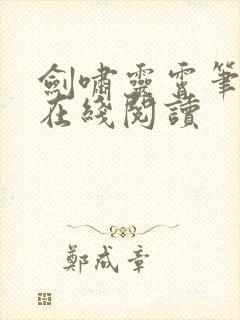 劍嘯靈霄筆
在綫閱讀
鄭成章